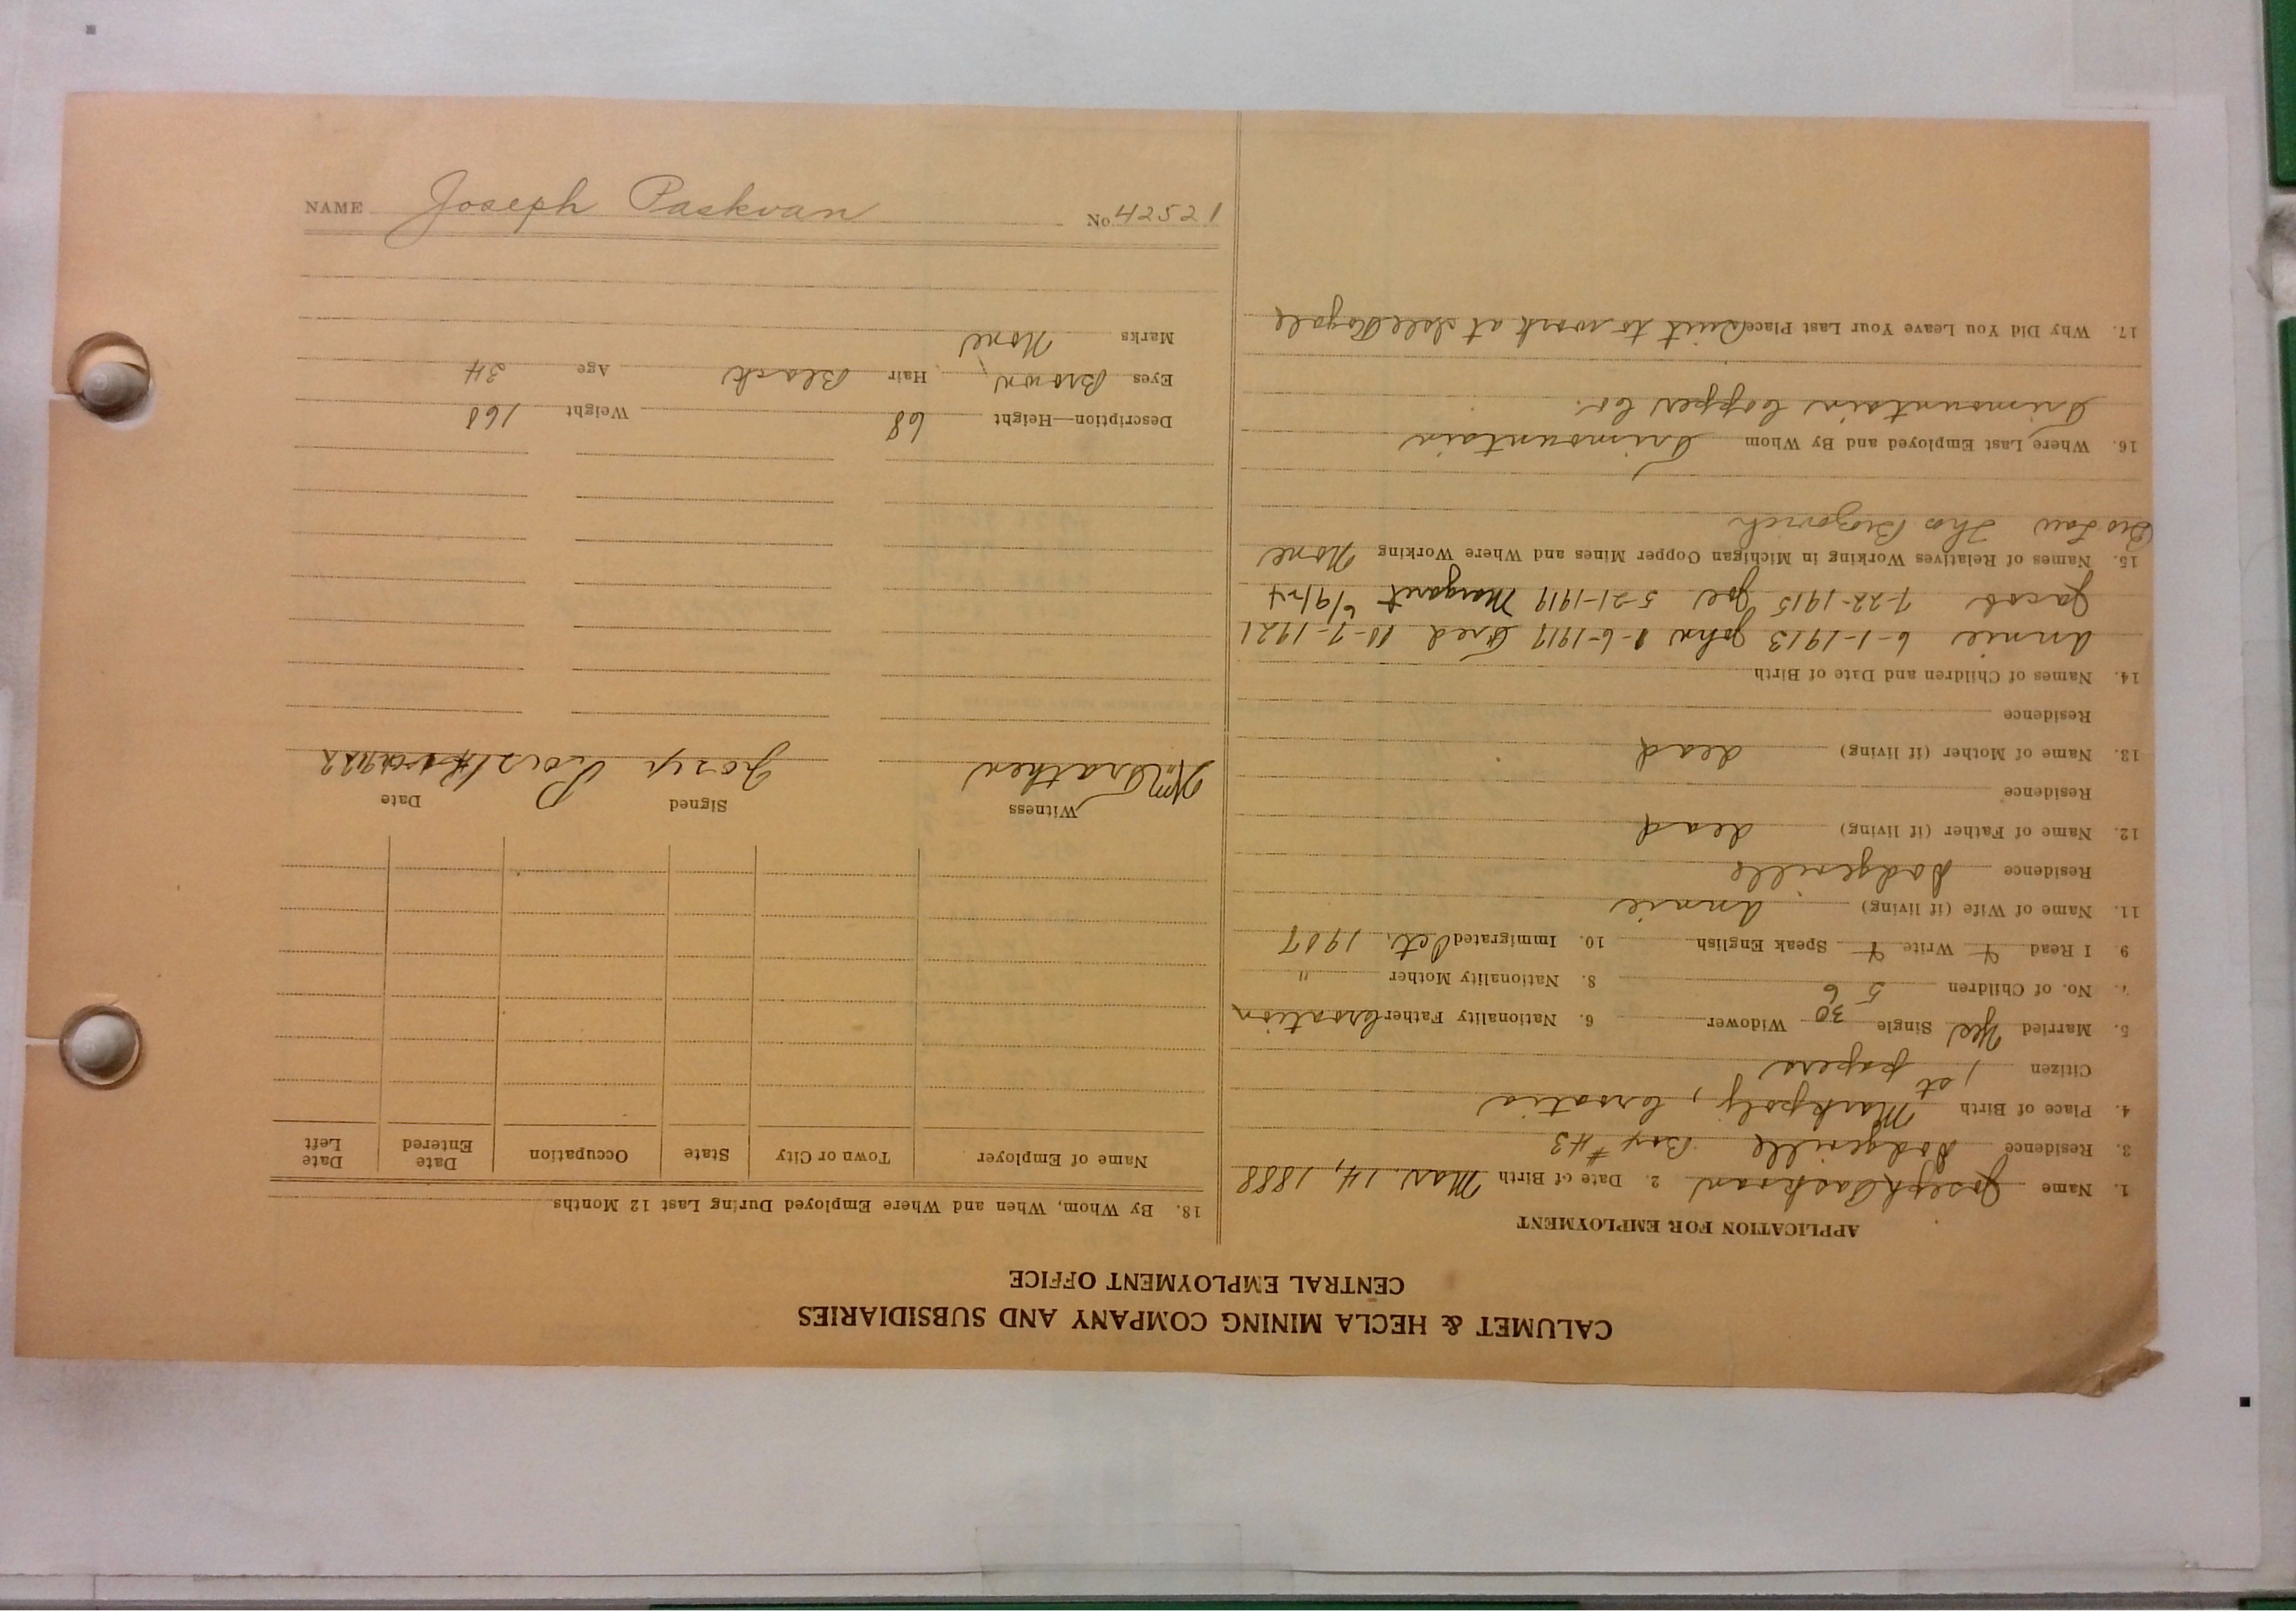 NAME Joseph Paskvan No. 42521
CALUMET & HECLA MINING COMPANY AND SUBSIDIARIES
CENTRAL EMPLOYMENT OFFICE
APPLICATION FOR EMPLOYMENT
1. Name Joseph Paskvan 2. Date of Birth Mar. 14, 1888
3. Residence Dodgeville Box #43
4. Place of Birth Croatia
Citizen 1st papers
5. Married Yes Single 30 Widower 6. Nationality Father Croation
7. No. of Children 5 6 8. Nationality Mother "
9 I Read Write Speak English 10. Immigrated Oct. 1907
11. Name of Wife (if living) Annie
Residence Dodgeville
12. Name of Father (if living) dead
Residence
13. Name of Mother (if living) dead
Residence
14. Names of Children and Date of Birth
Annie 6-1-1913 John 1-6-1917 Fred 10-7-1921
Jacob 7-22-1915 Joe 5-21-1919 Margaret 6/9/24
15. Names of Relatives Working in Michigan Copper Mines and Where Working None
Bro Law Thos Brozovich
16. Where Last Employed and By Whom Trimountain
Trimountain Copper Co.
17. Why Did You Leave Your Last Place Quit to work at Isle Royale
18. By Whom, When and Where Employed During Last 12 Months
Name of Employer Town or City State Occupation Date Entered Date Left
Witness Signed Date
Josip
Description—Height 68 Weight 168
Eyes Brown Hair Black Age 34
Marks None